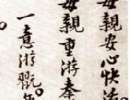 母親安心快活
母親重游秦
一意游戲